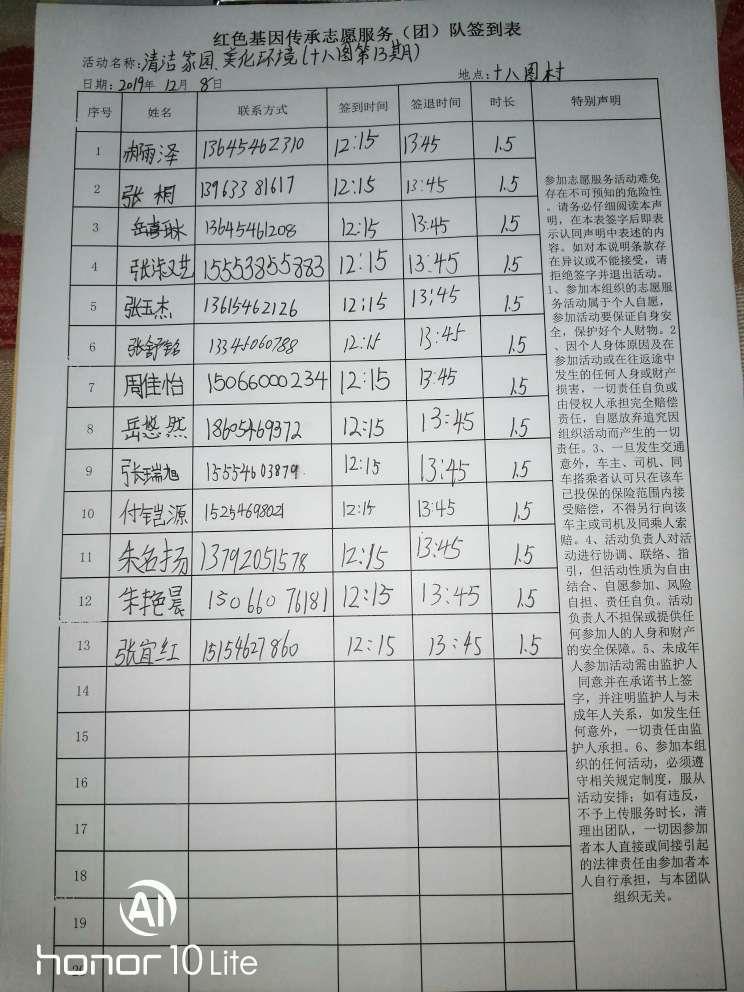 红色基因传承志愿服务（团）队签到表
活动名称:清洁家园、美化环境(十八图第13期)
日期:2019年12月8日 地点:十八图村
序号 姓名 联系方式 签到时间 签退时间 时长 特别声明
1 郝雨泽 13645462310 12:15 13:45 1.5
2 张桐 13963381617 12:15 13:45 1.5
3 13645461208 12:15 13:45 1.5
4 15553855883 12:15 13:45 1.5
5 张玉杰 13615462126 12:15 13:45 1.5
6 13345060788 12:15 13:45 1.5
7 周佳怡 15066000234 12:15 13:45 1.5
8 岳悠然 18605469372 12:15 13:45 1.5
9 张瑞旭 15554603879 12:15 13:45 1.5
10 付铠源 15254698021 12:15 13:45 1.5
11 朱名扬 13792051578 12:15 13:45 1.5
12 朱艳晨 15066076181 12:15 13:45 1.5
13 张宜红 15154627860 12:15 13:45 1.5
14
15
16
17
18
19
20
参加志愿服务活动难免
存在不可预知的危险性
。请务必仔细阅读本声
明，在本表签字后即表
示认同声明中表述的内
容。如对本说明条款存
在异议或不能接受，请
拒绝签字并退出活动。
1、参加本组织的志愿服
务活动属于个人自愿，
参加活动要保证自身安
全，保护好个人财物。2
、因个人身体原因及在
参加活动或在往返途中
发生的任何人身或财产
损害，一切责任自负或
由侵权人承担完全赔偿
责任，自愿放弃追究因
组织活动而产生的一切
责任。3、一旦发生交通
意外，车主、司机、同
车搭乘者认可只在该车
已投保的保险范围内接
受赔偿，不得另行向该
车主或司机及同乘人索
赔。4、活动负责人对活
动进行协调、联络、指
引，但活动性质为自由
结合、自愿参加、风险
自担、责任自负。活动
负责人不担保或提供任
何参加人的人身和财产
的安全保障。5、未成年
人参加活动需由监护人
同意并在承诺书上签
字，并注明监护人与未
成年人关系，如发生任
何意外，一切责任由监
护人承担。6、参加本组
织的任何活动，必须遵
守相关规定制度，服从
活动安排；如有违反，
不予上传服务时长，清
理出团队，一切因参加
者本人直接或间接引起
的法律责任由参加者本
人自行承担，与本团队
组织无关。
AI
honor 10 Lite